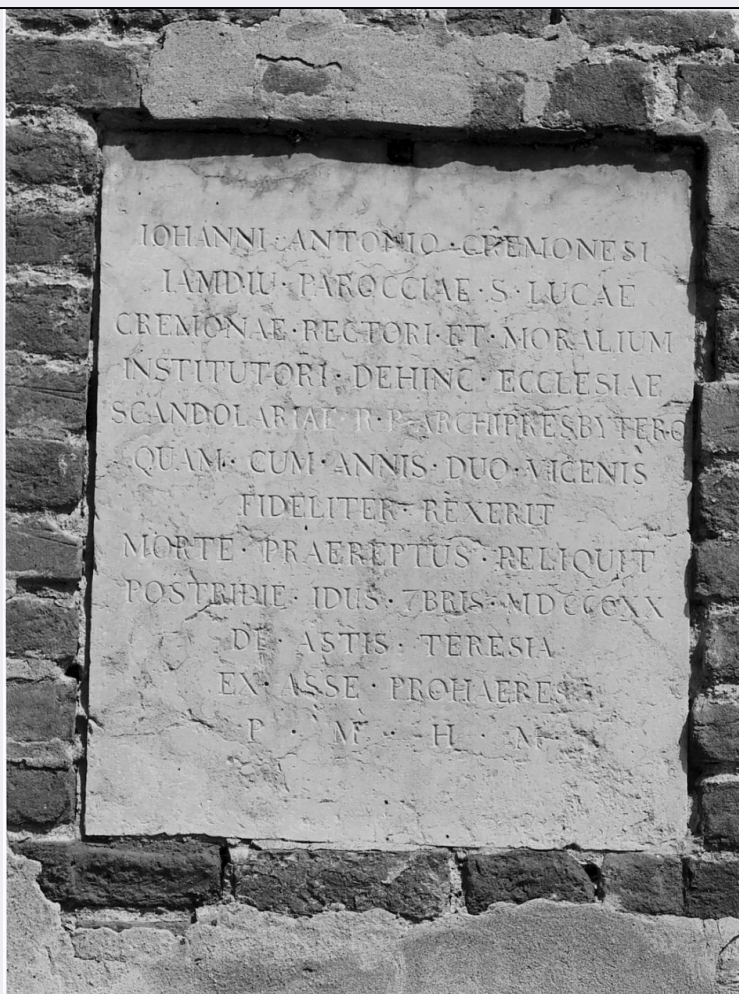 IOHANNI · ANTONIO · CREMONESI
IAMDIU · PAROCCIAE · S · LUCAE
CREMONAE · RECTORI · ET · MORALIUM
INSTITUTORI · DEHINC · ECCLESIAE
SCANDOLARIAE R · P · ARCHIPRESBYTERO
QUAM · CUM · ANNIS · DUO · VICENIS
FIDELITER · REXERIT
MORTE · PRAEREPTUS · RELIQUIT
POSTRIDIE · IDUS · 7BRIS · MDCCCXX
DE · ASTIS · TERESIA
EX · ASSE · PROHAERES
P · M · H · M